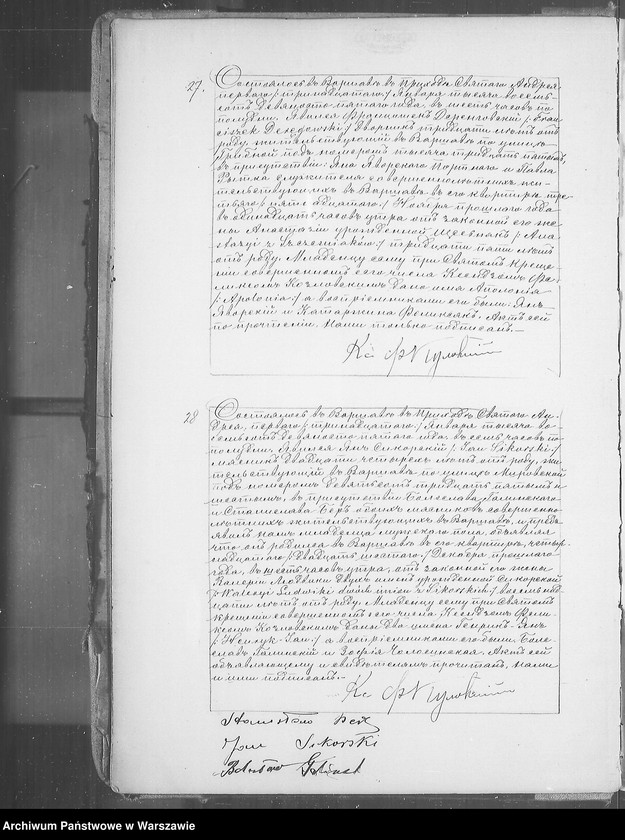 27.
Состоялось въ Варшавѣ въ Приходѣ Святаго Андрея,
перваго /: тринадцатаго :/ Января тысяча восемь-
сотъ девяносто пятаго года, въ шесть часовъ по
полудни. Явился Францишекъ /: Fran-
ciszek :/ Дворникъ тридцати лѣтъ отъ
роду, жительствующій въ Варшавѣ по улицѣ
подъ номеромъ тысяча тридцать пятымъ,
въ присутствіи: Яна Яворскаго Портнаго и Павла
служителя совершеннолѣтнихъ жи-
тельствующихъ въ Варшавѣ въ его квартирѣ тре-
тьяго /: пятнадцатаго :/ Ноября прошлаго года
въ одинадцать часовъ утра отъ законной его же-
ны Анастазіи урожденной /: Ana-
stazyi z :/ тридцати пяти лѣтъ
отъ роду. Младенцу сему при Святомъ Креще-
ніи совершенномъ сего числа Ксендзомъ Фе-
ликсомъ Козловскимъ дано имя Аполонія
/: Apolonia :/ а воспріемниками его были: Янъ
Яворскій и Катаржина. Актъ сей
по прочтеніи Нами только подписанъ.—
28
Состоялось въ Варшавѣ въ Приходѣ Святаго Ан-
дрея, перваго /: тринадцатаго :/ Января тысяча во-
семьсотъ девяносто пятаго года, въ семь часовъ по
полудни. Явился Янъ Сикорскій /: Jan Sikorski :/
мясникъ двадцати четырехъ лѣтъ отъ роду, жи-
тельствующій въ Варшавѣ по улицѣ Мировской
подъ номеромъ девятьсотъ тридцать пятымъ и
шестымъ, въ присутствіи Болеслава
и Станислава Беръ обоихъ мясниковъ совершенно-
лѣтнихъ жительствующихъ въ Варшавѣ, и предъ-
явилъ Намъ младенца мужескаго пола, объявляя
что онъ родился въ Варшавѣ въ его квартирѣ, четыр-
надцатаго /: двадцать шестаго :/ Декабря прошлаго
года, въ шесть часовъ утра, отъ законной его жены
Валеріи Людвики двухъ именъ урожденной Сикорской
/: Waleryi Ludwiki dwóch imion z Sikorskich :/ восемьнад-
цати лѣтъ отъ роду. Младенцу сему при Святомъ
Крещеніи совершенномъ сего числа Ксендзомъ Фели-
ксомъ Козловскимъ даны два имена Генрикъ-Янъ
/: Henryk-Jan :/ а воспріемниками его были: Боле-
славъ и Зофія. Актъ сей
объявляющему и свидѣтелямъ прочитанъ, Нами
и ими подписанъ.—
Stanisław Ber
Jan Sikorski
Bolesław
Archiwum Państwowe w Warszawie